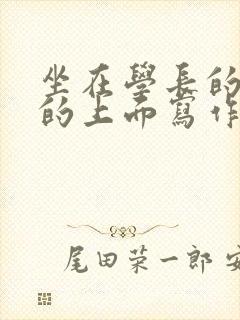 坐在學長的
的上而寫作
尾田荣一郎 安